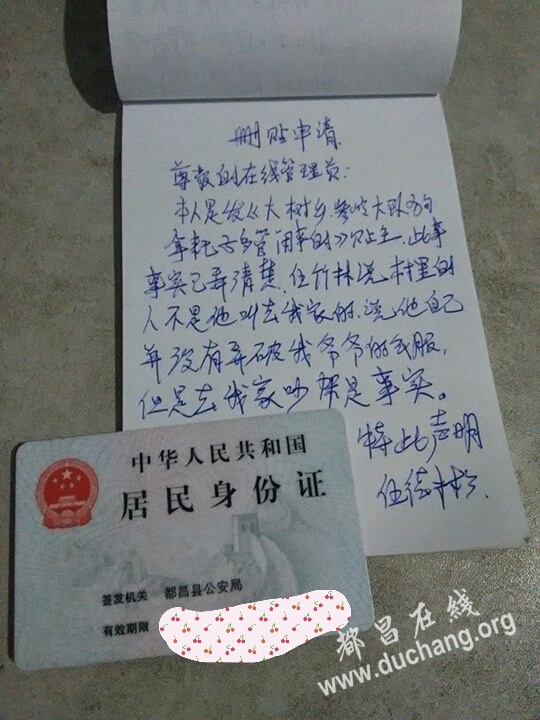 删贴申请
尊敬的在线管理员:
本人是发《大树乡
拿耗子多管闲事的》贴主,此事
事实已弄清楚,任竹林说村里的
人不是他叫去我家的,说他自己
并没有弄破我爷爷的衣服,
但是去我家吵架是事实。
特此声明
中华人民共和国
居民身份证
签发机关 都昌县公安局
有效期限
都昌在线
www.duchang.org